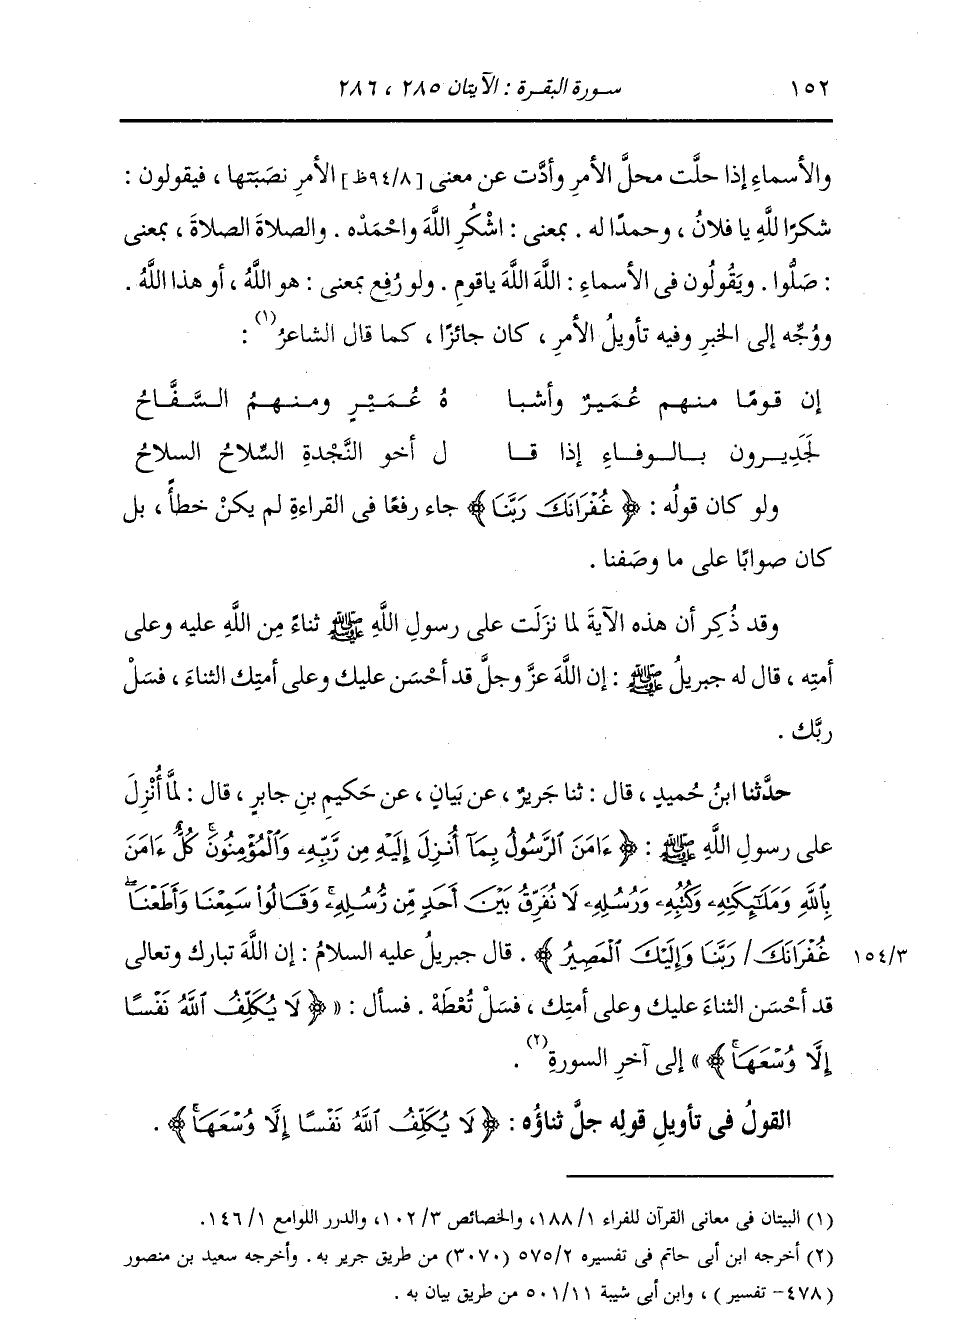 ١٥٢ سورة البقرة : الآيتان ٢٨٥ ، ٢٨٦
والأسماءِ إذا حلَّت محلَّ الأمرِ وأدَّت عن معنى [٩٤/٨ظ] الأمرِ نصَبَتها ، فيقولون :
شكرًا للَّهِ يا فلانُ ، وحمدًا له . بمعنى : اشْكُرِ اللَّهَ واحْمَدْه . والصلاةَ الصلاةَ ، بمعنى
: صَلُّوا . ويَقُولُون فى الأسماءِ : اللَّهَ اللَّهَ ياقومِ . ولو رُفِع بمعنى : هو اللَّهُ ، أو هذا اللَّهُ .
ووُجِّه إلى الخبرِ وفيه تأويلُ الأمرِ ، كان جائزًا ، كما قال الشاعرُ(١) :
إن قومًا منهم عُمَيرٌ وأشبا هُ عُمَيْرٍ ومنهمُ السَّفَّاحُ
لَجَدِيرون بالوفاءِ إذا قا ل أخو النَّجْدةِ السِّلاحُ السلاحُ
ولو كان قولُه : ﴿ غُفْرَانَكَ رَبَّنَا ﴾ جاء رفعًا فى القراءةِ لم يكنْ خطأً ، بل
كان صوابًا على ما وصَفنا .
وقد ذُكِر أن هذه الآيةَ لما نزَلَت على رسولِ اللَّهِ ﷺ ثناءً مِن اللَّهِ عليه وعلى
أمتِه ، قال له جبريلُ ﷺ : إن اللَّهَ عزَّ وجلَّ قد أحْسَن عليك وعلى أمتِك الثناءَ ، فسَلْ
ربَّك .
حدَّثنا ابنُ حُميدٍ ، قال : ثنا جَريرٌ ، عن بَيانٍ ، عن حَكيمِ بنِ جابرٍ ، قال : لمَّا أُنْزِلَ
على رسولِ اللَّهِ ﷺ : ﴿ ءَامَنَ ٱلرَّسُولُ بِمَآ أُنزِلَ إِلَيْهِ مِن رَّبِّهِۦ وَٱلْمُؤْمِنُونَۚ كُلٌّ ءَامَنَ
بِٱللَّهِ وَمَلَـٰٓئِكَتِهِۦ وَكُتُبِهِۦ وَرُسُلِهِۦ لَا نُفَرِّقُ بَيْنَ أَحَدٍ مِّن رُّسُلِهِۦۚ وَقَالُوا۟ سَمِعْنَا وَأَطَعْنَاۖ
غُفْرَانَكَ/ رَبَّنَا وَإِلَيْكَ ٱلْمَصِيرُ ﴾ . قال جبريلُ عليه السلامُ : إن اللَّهَ تبارك وتعالى ١٥٤/٣
قد أحْسَن الثناءَ عليك وعلى أمتِك ، فسَلْ تُعْطَهْ . فسأل : « ﴿ لَا يُكَلِّفُ ٱللَّهُ نَفْسًا
إِلَّا وُسْعَهَاۚ ﴾ » إلى آخرِ السورةِ(٢) .
القولُ فى تأويلِ قولِه جلَّ ثناؤُه : ﴿ لَا يُكَلِّفُ ٱللَّهُ نَفْسًا إِلَّا وُسْعَهَاۚ ﴾ .
(١) البيتان فى معانى القرآن للفراء ١/ ١٨٨، والخصائص ٣/ ١٠٢، والدرر اللوامع ١/ ١٤٦.
(٢) أخرجه ابن أبى حاتم فى تفسيره ٥٧٥/٢ (٣٠٧٠) من طريق جرير به . وأخرجه سعيد بن منصور
(٤٧٨- تفسير ) ، وابن أبى شيبة ٥٠١/١١ من طريق بيان به .